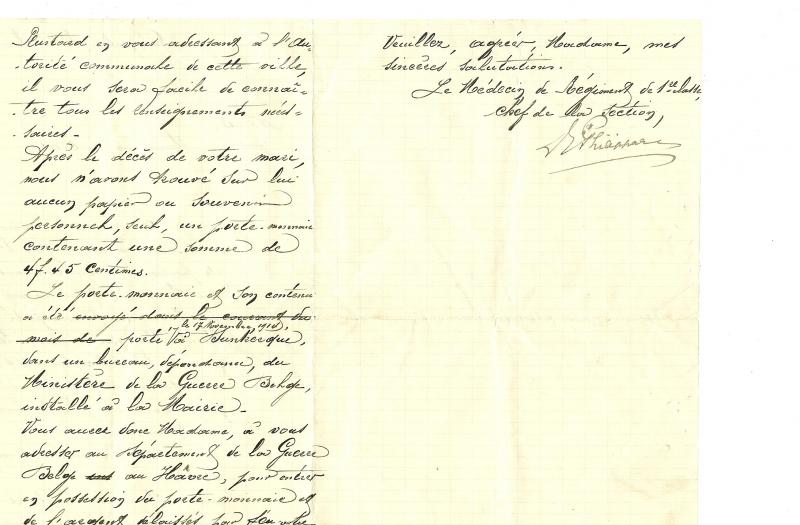 Plustard en vous adressant à l'Au-
-torité communale de cette ville,
il vous sera facile de connaî-
-tre tous les renseignements néces-
-saires -
Après le décès de votre mari,
nous n'avons trouvé sur lui
aucun papier ou souvenir
personnel, seul, un porte-monnaie
contenant une somme de
4f.45 centimes.
Le porte-monnaie et son contenu
a été envoyé dans le courant du
le 17 Novembre 1914,
mois de porté à Dunkerque,
dans un bureau, dépendance, du
Ministère de la Guerre Belge,
installé à la Mairie -
Vous aurez donc Madame, à vous
adresser au Département de la Guerre
Belge au Hâvre, pour entrer
en possession du porte-monnaie et
de l'argent délaissés par feu votre
Veuillez, agréer, Madame, mes
sincères salutations.
Le Médecin de Régiment de 1re classe,
chef de la section,